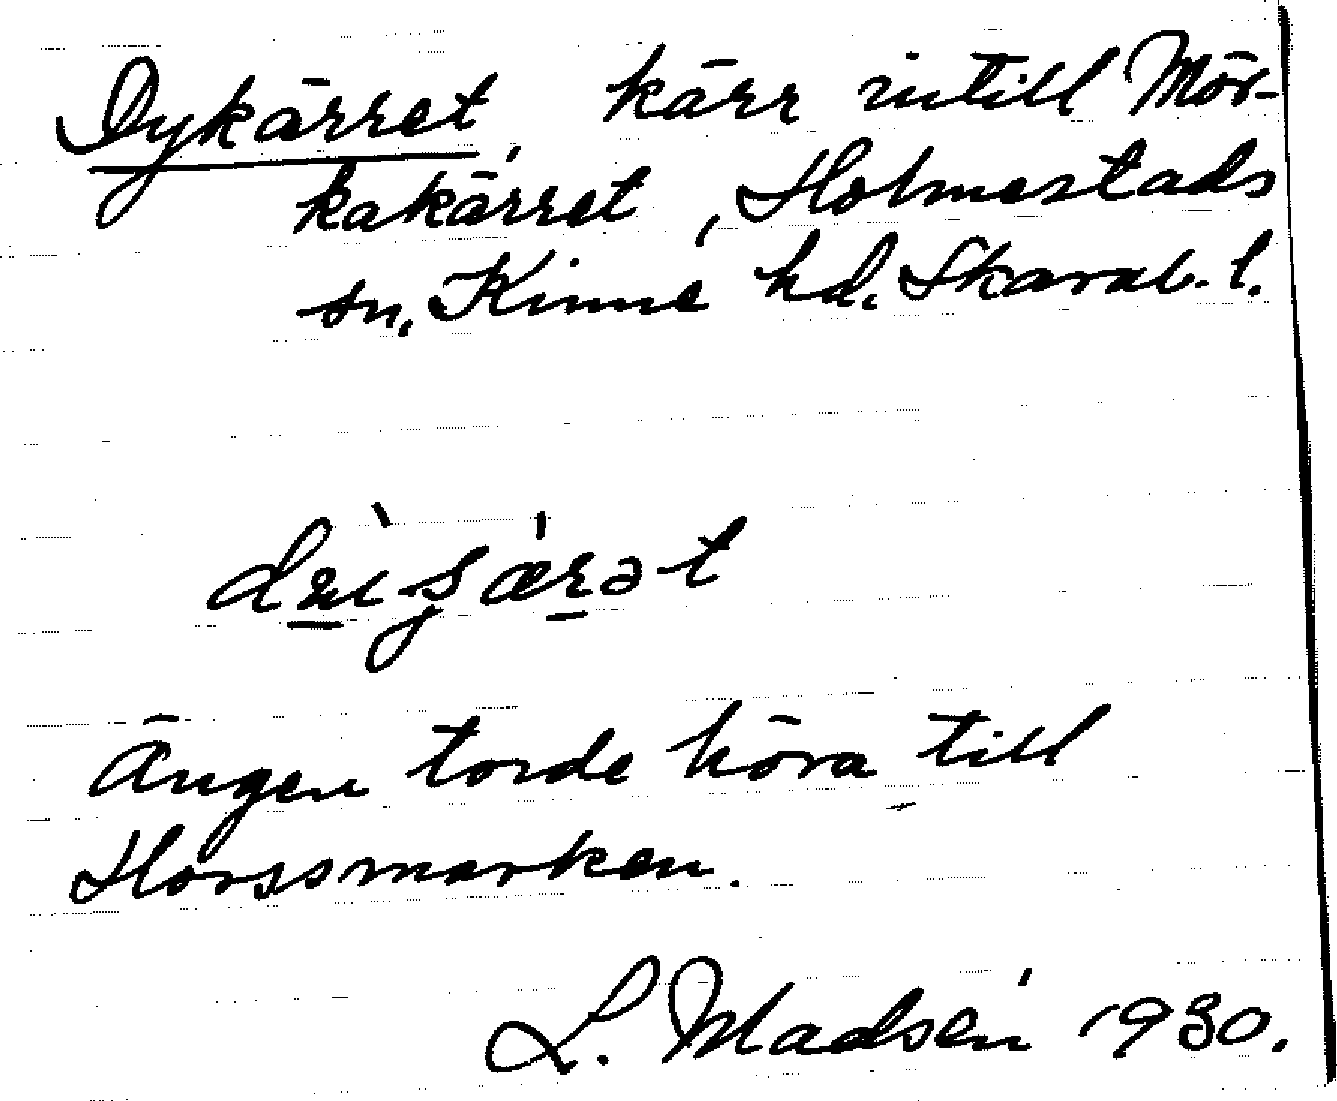 Dykärret, kärr intill Mör-
kakärret, Holmestads
sn, Kinne hd, Skarab. l.
Ängen torde höra till
Horssmarken.
L. Madsén 1930.